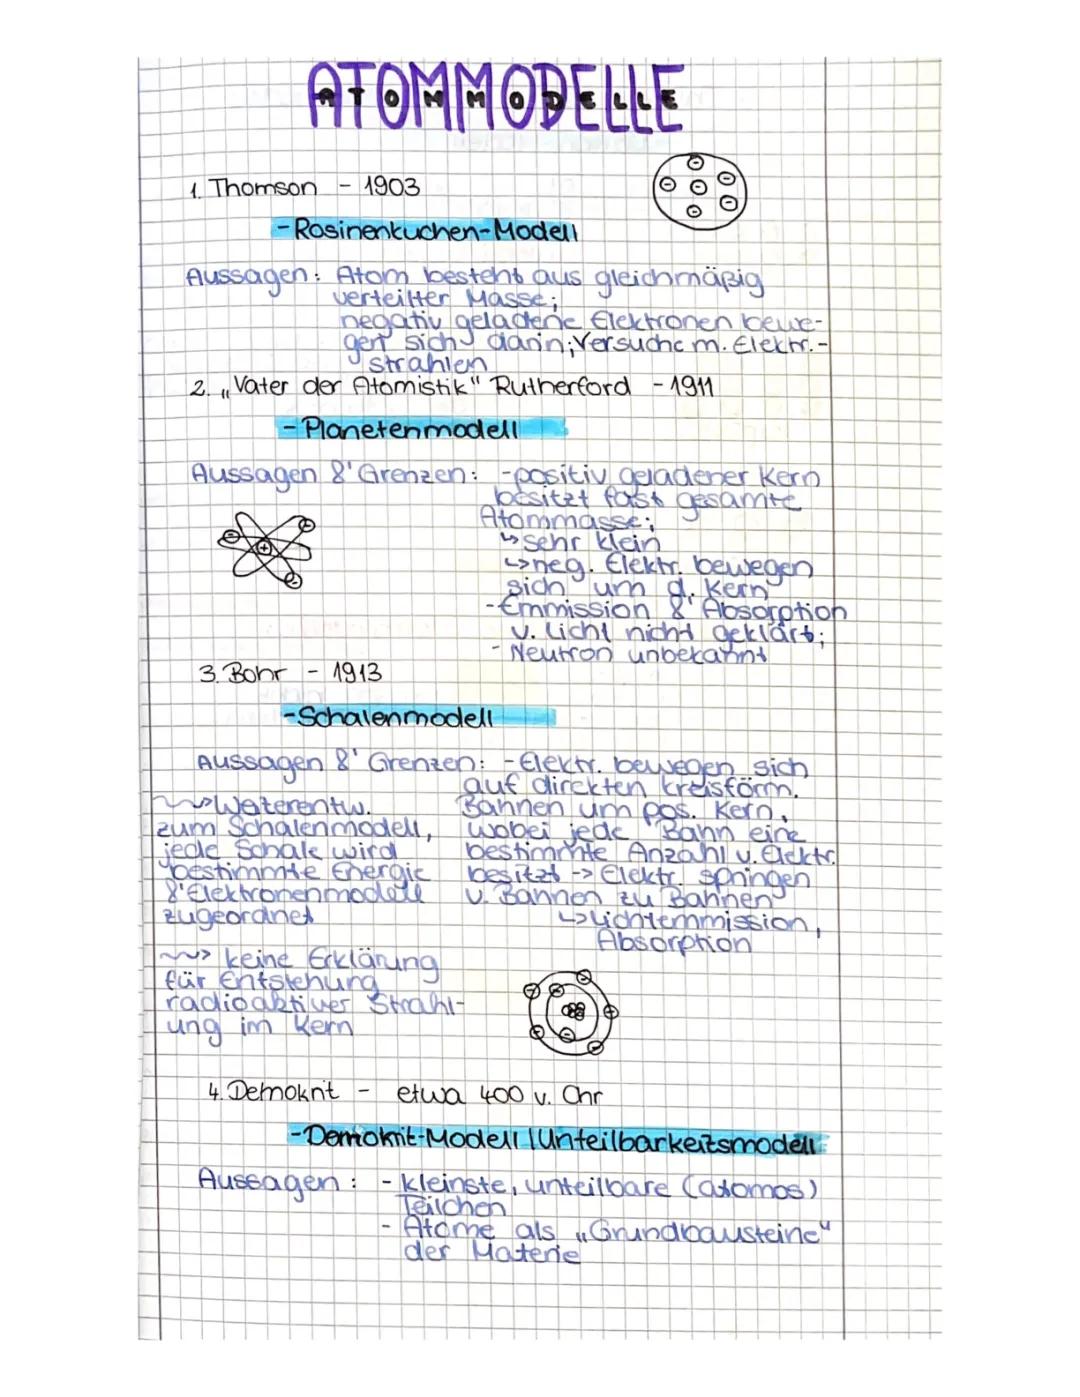 ATOMMODELLE
1. Thomson - 1903
- Rosinenkuchen-Modell
Aussagen: Atom besteht aus gleichmäßig
verteilter Masse;
negativ geladene Elektronen bewe-
gen sich darin; Versuche m. Elektr.-
strahlen
2. „Vater der Atomistik" Rutherford - 1911
- Planetenmodell
Aussagen &' Grenzen: - positiv geladener Kern
besitzt fast gesamte
Atommasse;
↳ sehr klein
↳ neg. Elektr. bewegen
sich um d. Kern
- Emmission &' Absorption
v. Licht nicht geklärt;
- Neutron unbekannt
3. Bohr - 1913
- Schalenmodell
Aussagen &' Grenzen: - Elektr. bewegen sich
auf direkten kreisförm.
Bahnen um pos. Kern,
wobei jede Bahn eine
bestimmte Anzahl v. Elektr.
besitzt -> Elektr. springen
v. Bahnen zu Bahnen
↳ Lichtemmission,
Absorption
~> Weiterentw.
zum Schalenmodell,
jede Schale wird
bestimmte Energie
&' Elektronenmodell
zugeordnet
~> keine Erklärung
für Entstehung
radioaktiver Strahl-
ung im Kern
4. Demokrit - etwa 400 v. Chr
- Demokrit-Modell | Unteilbarkeitsmodell
Aussagen: - kleinste, unteilbare (atomos)
Teilchen
- Atome als „Grundbausteine"
der Materie